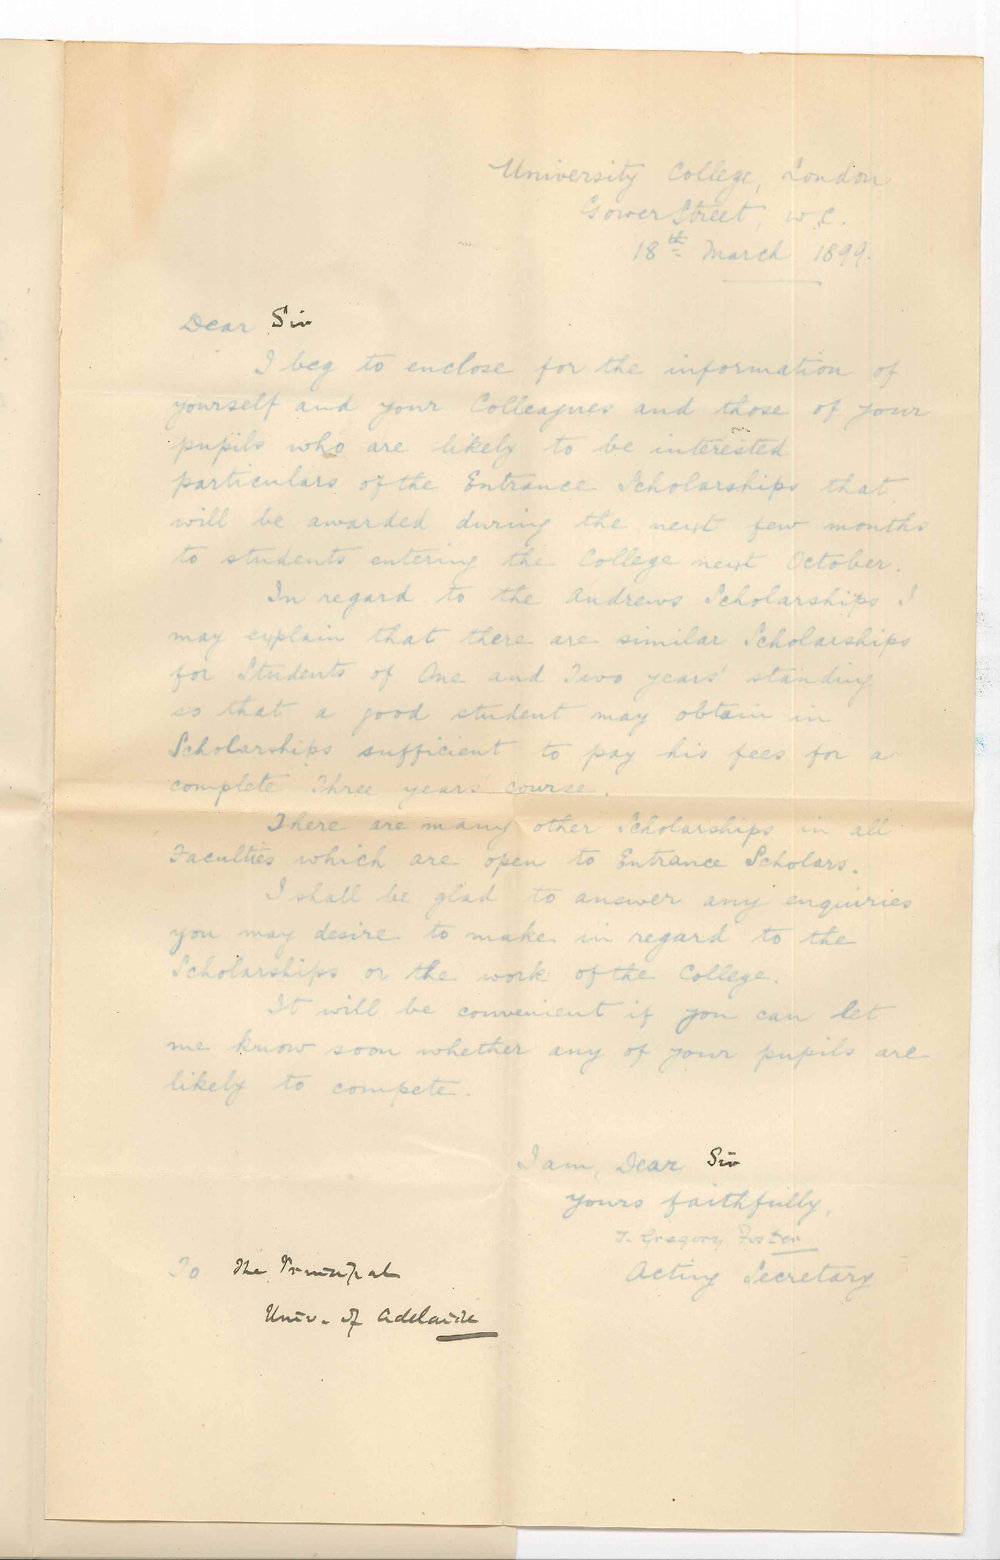 University College, London
Gower Street, W.C.
18th March 1899.
Dear Sir
I beg to enclose for the information of
yourself and your Colleagues and those of your
pupils who are likely to be interested
particulars of the Entrance Scholarships that
will be awarded during the next few months
to students entering the College next October.
In regard to the Andrews Scholarships I
may explain that there are similar Scholarships
for Students of One and Two years' standing
so that a good student may obtain in
Scholarships sufficient to pay his fees for a
complete Three years' course.
There are many other Scholarships in all
Faculties which are open to Entrance Scholars.
I shall be glad to answer any enquiries
you may desire to make in regard to the
Scholarships or the work of the College.
It will be convenient if you can let
me know soon whether any of your pupils are
likely to compete.
I am, Dear Sir
Yours faithfully,
T. Gregory Foster
Acting Secretary
To The Principal
Univ. of Adelaide